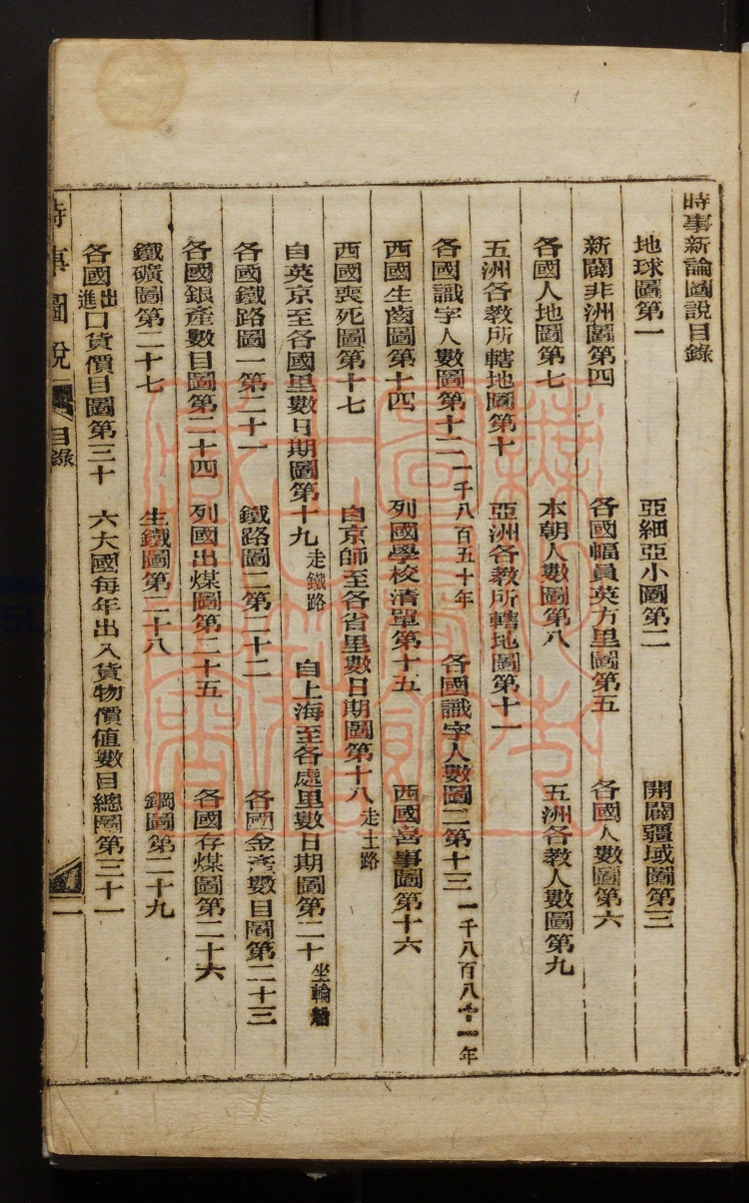 時事新論圖說目錄
地球圖第一　亞細亞小圖第二　開闢疆域圖第三
新闢非洲圖第四　各國幅員英方里圖第五　各國人數圖第六
各國人地圖第七　本朝人數圖第八　五洲各教人數圖第九
五洲各教所轄地圖第十　亞洲各教所轄地圖第十一
各國識字人數圖第十二一千八百五十年　各國識字人數圖二第十三一千八百八十一年
西國生齒圖第十四　列國學校清單第十五　西國善事圖第十六
西國喪死圖第十七　自京師至各省里數日期圖第十八走土路
自英京至各國里數日期圖第十九走鐵路　自上海至各處里數日期圖第二十坐輪船
各國鐵路圖一第二十一　鐵路圖二第二十二　各國金產數目圖第二十三
各國銀產數目圖第二十四　列國出煤圖第二十五　各國存煤圖第二十六
鐵礦圖第二十七　生鐵圖第二十八　鋼圖第二十九
各國出進口貨價目圖第三十　六大國每年出入貨物價值數目總圖第三十一
時事圖說　目錄　一